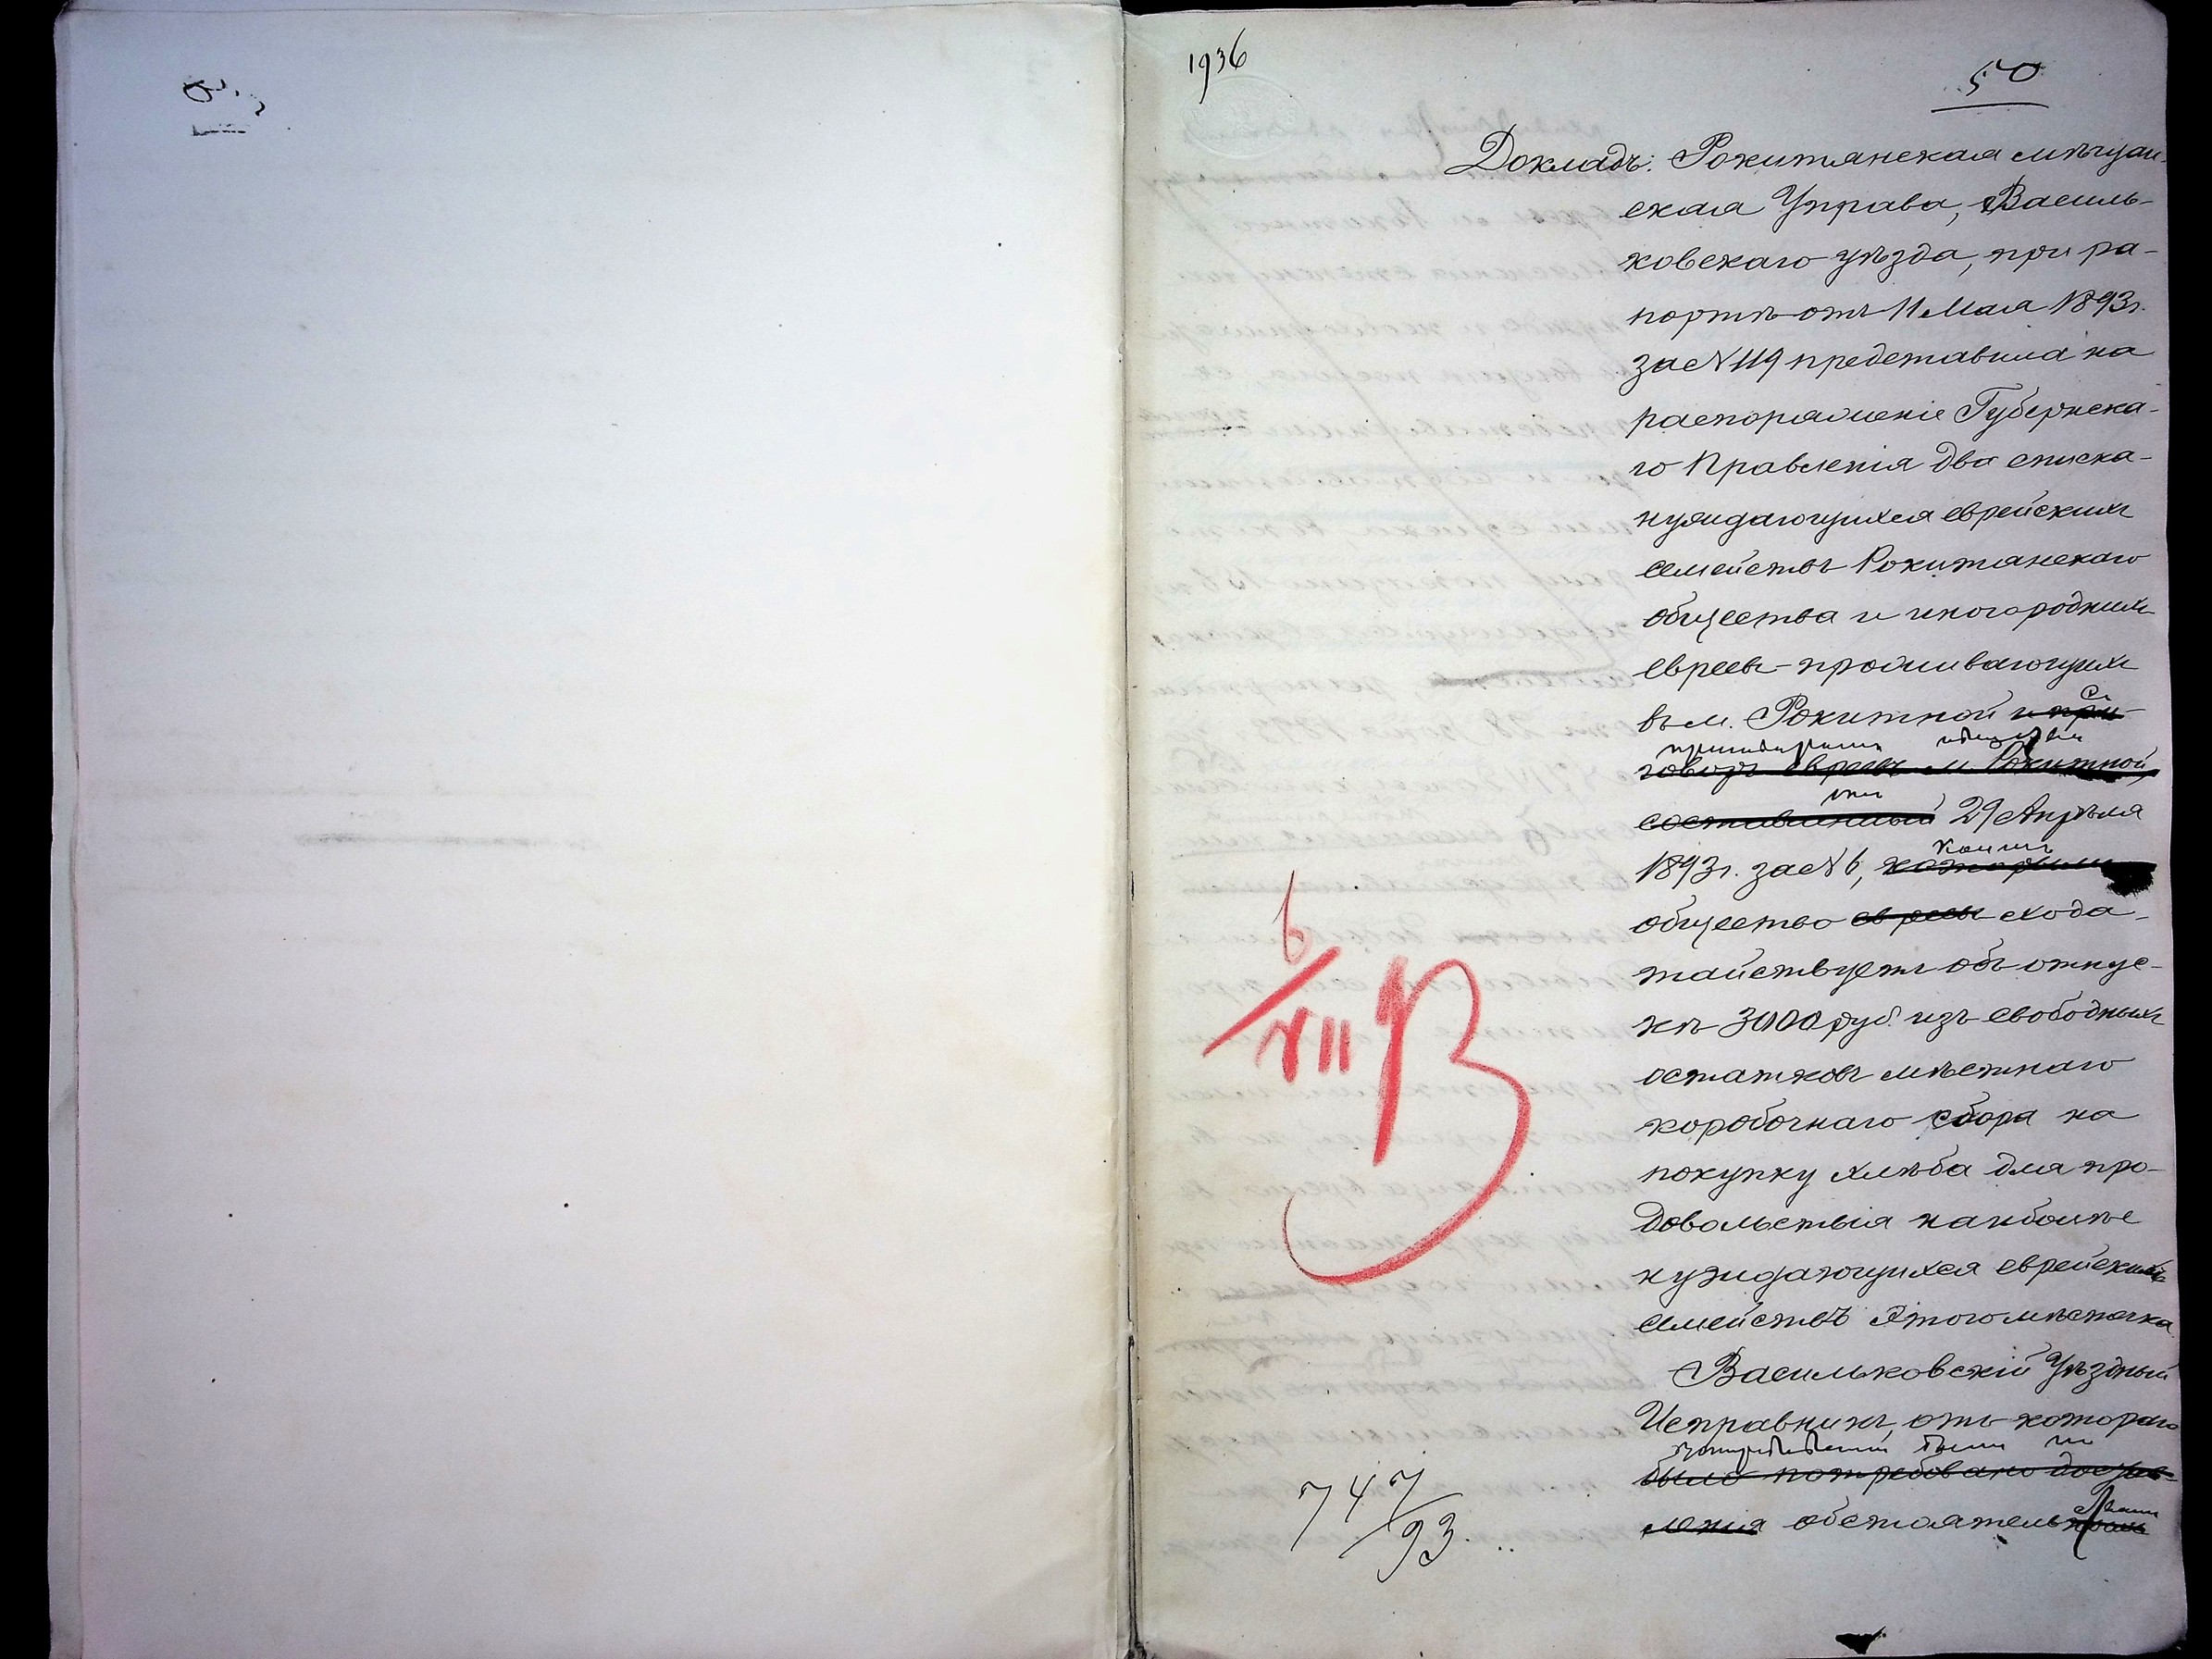 1936
50
Докладъ: Рокитянская мѣщан-
ская Управа, Василь-
ковскаго уѣзда, при ра-
портѣ отъ 11 Мая 1893г.
за № 119 представила на
распоряженіе Губернска-
го Правленія два списка
нуждающихся еврейскихъ
семействъ Рокитянскаго
общества и иногороднихъ
евреевъ проживающихъ
съ
въ м. Рокитной и при-
приговоромъ общества
говоръ евреевъ м. Рокитной,
отъ
составленный 29 Апрѣля
коимъ
1893г. за № 6, которымъ
общество евреевъ хода-
тайствуетъ объ отпус-
кѣ 3000 руб. изъ свободныхъ
остатковъ мѣстнаго
коробочнаго сбора на
покупку хлѣба для про-
довольствія наиболѣе
нуждающихся еврейскихъ
семействъ этого мѣстечка
Васильковскій Уѣздный
Исправникъ, отъ котораго
были
было потребовано
обстоятель
6/VII 93
747/93.